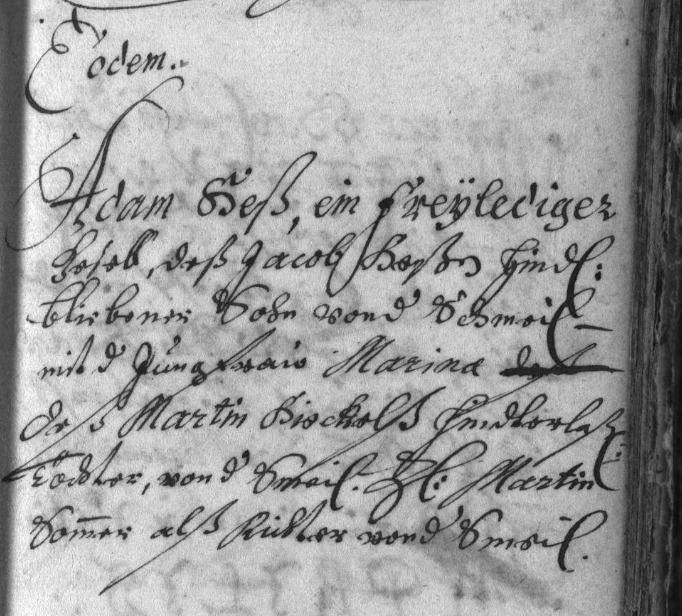 Eodem.
Adam Heß, ein freÿlediger
Gesell, deß Jacob Heßen hind:
bliebener Sohn vond Schmeil
mit d Jungfraw Marina
deß Martin Hickelß hinderlaß:
Tochter, vond Smeil. Zl: Martin
Som̄er alß Richter vond Smeil.